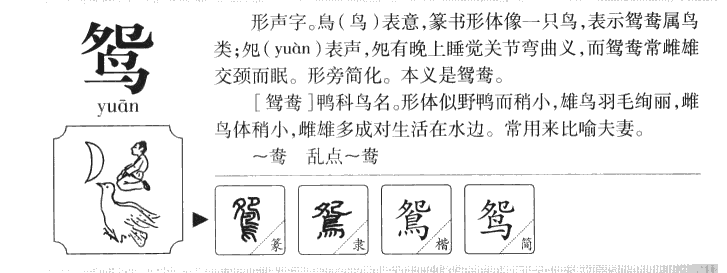 鸳
yuān
形声字。鳥(鸟)表意,篆书形体像一只鸟,表示鸳鸯属鸟
类;夗(yuàn)表声,夗有晚上睡觉关节弯曲义,而鸳鸯常雌雄
交颈而眠。形旁简化。本义是鸳鸯。
[鸳鸯]鸭科鸟名。形体似野鸭而稍小,雄鸟羽毛绚丽,雌
鸟体稍小,雌雄多成对生活在水边。常用来比喻夫妻。
~鸯 乱点~鸯
鴛 篆
鴛 隶
鴛 楷
鸳 简